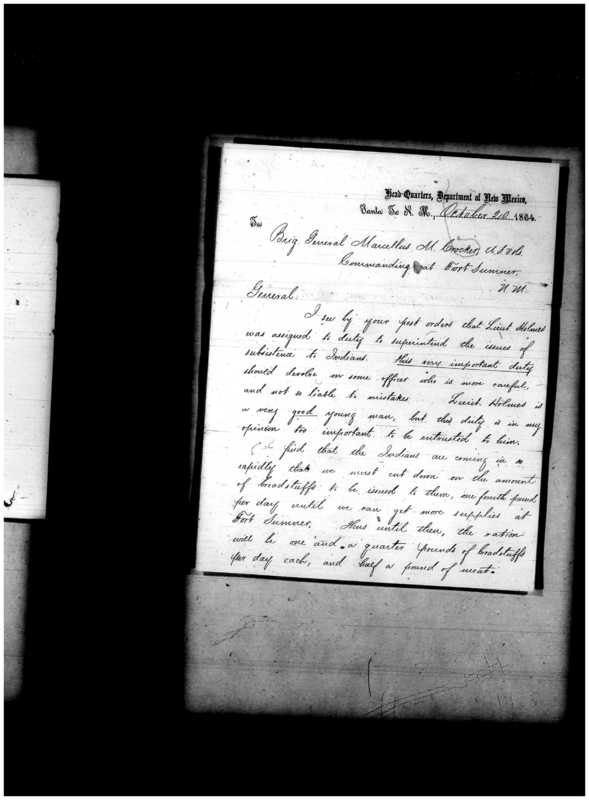 Head-Quarters, Department of New Mexico,
Santa Fe N. M., October 20 1864.
To
Brig General Marcellus M. Crocker, U.S.Vols.
Commanding at Fort Sumner.
N. M.
General.
I see by your post orders that Lieut Holmes
was assigned to duty to superintend the issues of
subsistence to Indians. This very important duty
should devolve on some officer who is more careful,
and not so liable to mistakes. Lieut. Holmes is
a very good young man, but this duty is in my
opinion too important to be entrusted to him.
I find that the Indians are coming in so
rapidly that we must cut down on the amount
of breadstuffs to be issued to them, one fourth pound
per day until we can get more supplies at
Fort Sumner. Thus until then, the ration
will be one and a quarter pounds of breadstuffs
per day each, and half a pound of meat.